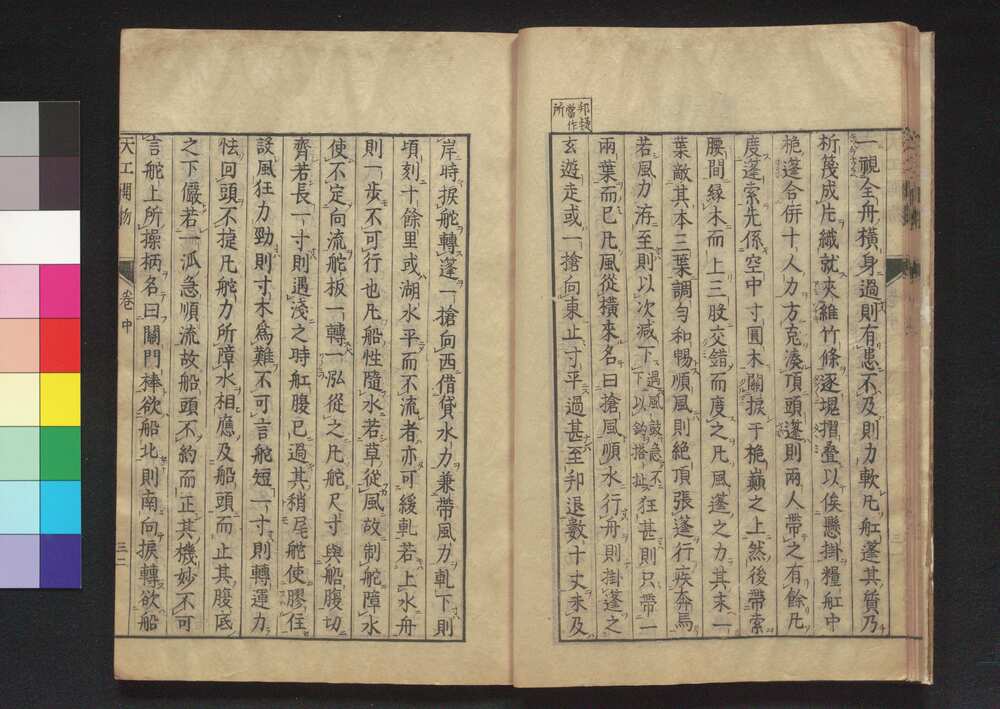 一視全舟橫身過則有患不及則力軟凡舡蓬其質乃
析篾成片織就夾維竹條逐塊摺疊以俟懸掛糧舡中
桅蓬合併十人力方克湊頂頭蓬則兩人帶之有餘凡
度蓬索先係空中寸圓木關捩于桅巔之上然後帶索
腰間緣木而上三股交錯而度之凡風蓬之力其末一
葉敵其本三葉調勻和暢順風則絶頂張蓬行疾奔馬
若風力洊至則以次減下遇風鼓急不下以鈎搭扯狂甚則只帶一
兩葉而已凡風從橫來名曰搶風順水行舟則掛蓬之
玄遊走或一搶向東止寸平過甚至却退數十丈未及
岸時捩舵轉蓬一搶向西借貸水力兼帶風力軋下則
頃刻十餘里或湖水平而不流者亦可緩軋若上水舟
則一步不可行也凡船性隨水若草從風故制舵障水
使不定向流舵板一轉一泓從之凡舵尺寸與船腹切
齊若長一寸則遇淺之時舡腹已過其稍尾舵使膠住
設風狂力勁則寸木爲難不可言舵短一寸則轉運力
怯回頭不捷凡舵力所障水相應及船頭而止其腹底
之下儼若一泒急順流故船頭不約而正其機妙不可
言舵上所操柄名曰關門棒欲船北則南向捩轉欲船
天工開物
卷中
三二